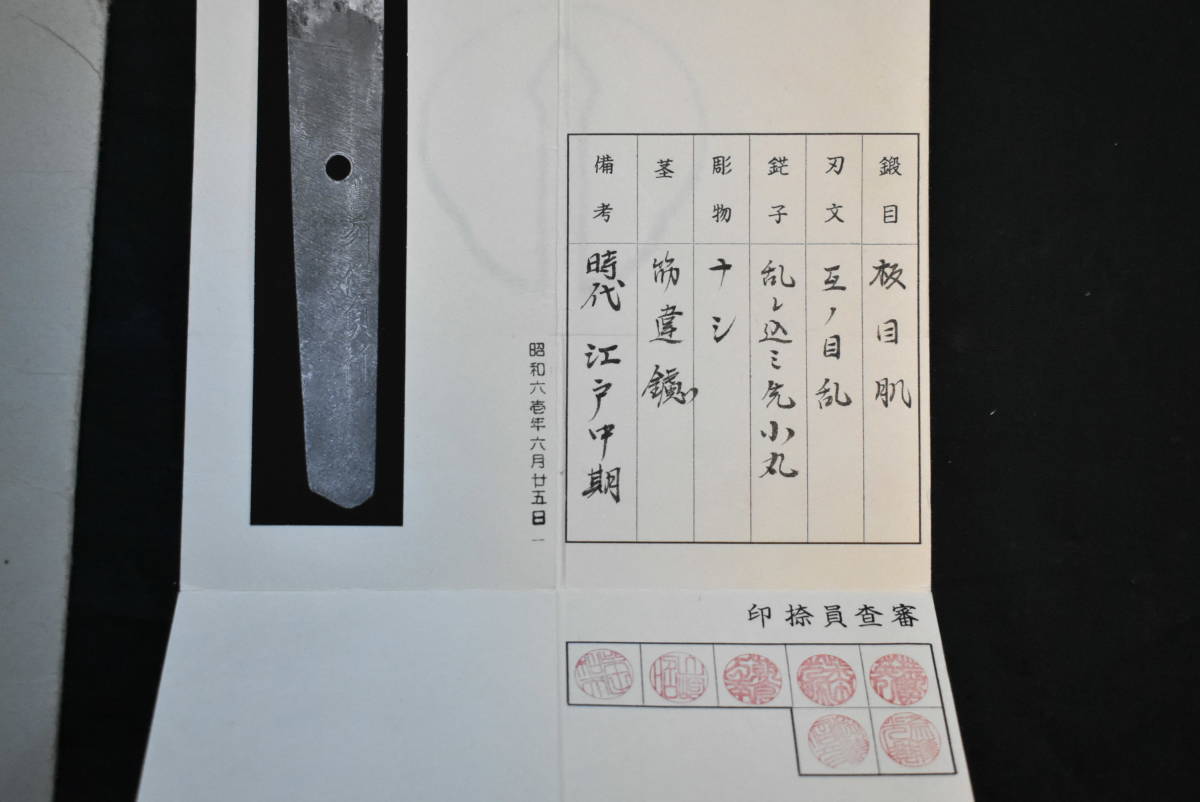 鍛目 板目肌
刃文 互ノ目乱
鋩子 乱レ込ミ先小丸
彫物 ナシ
茎 筋違鑢
備考 時代 江戸中期
昭和六壱年六月廿五日
審査員捺印